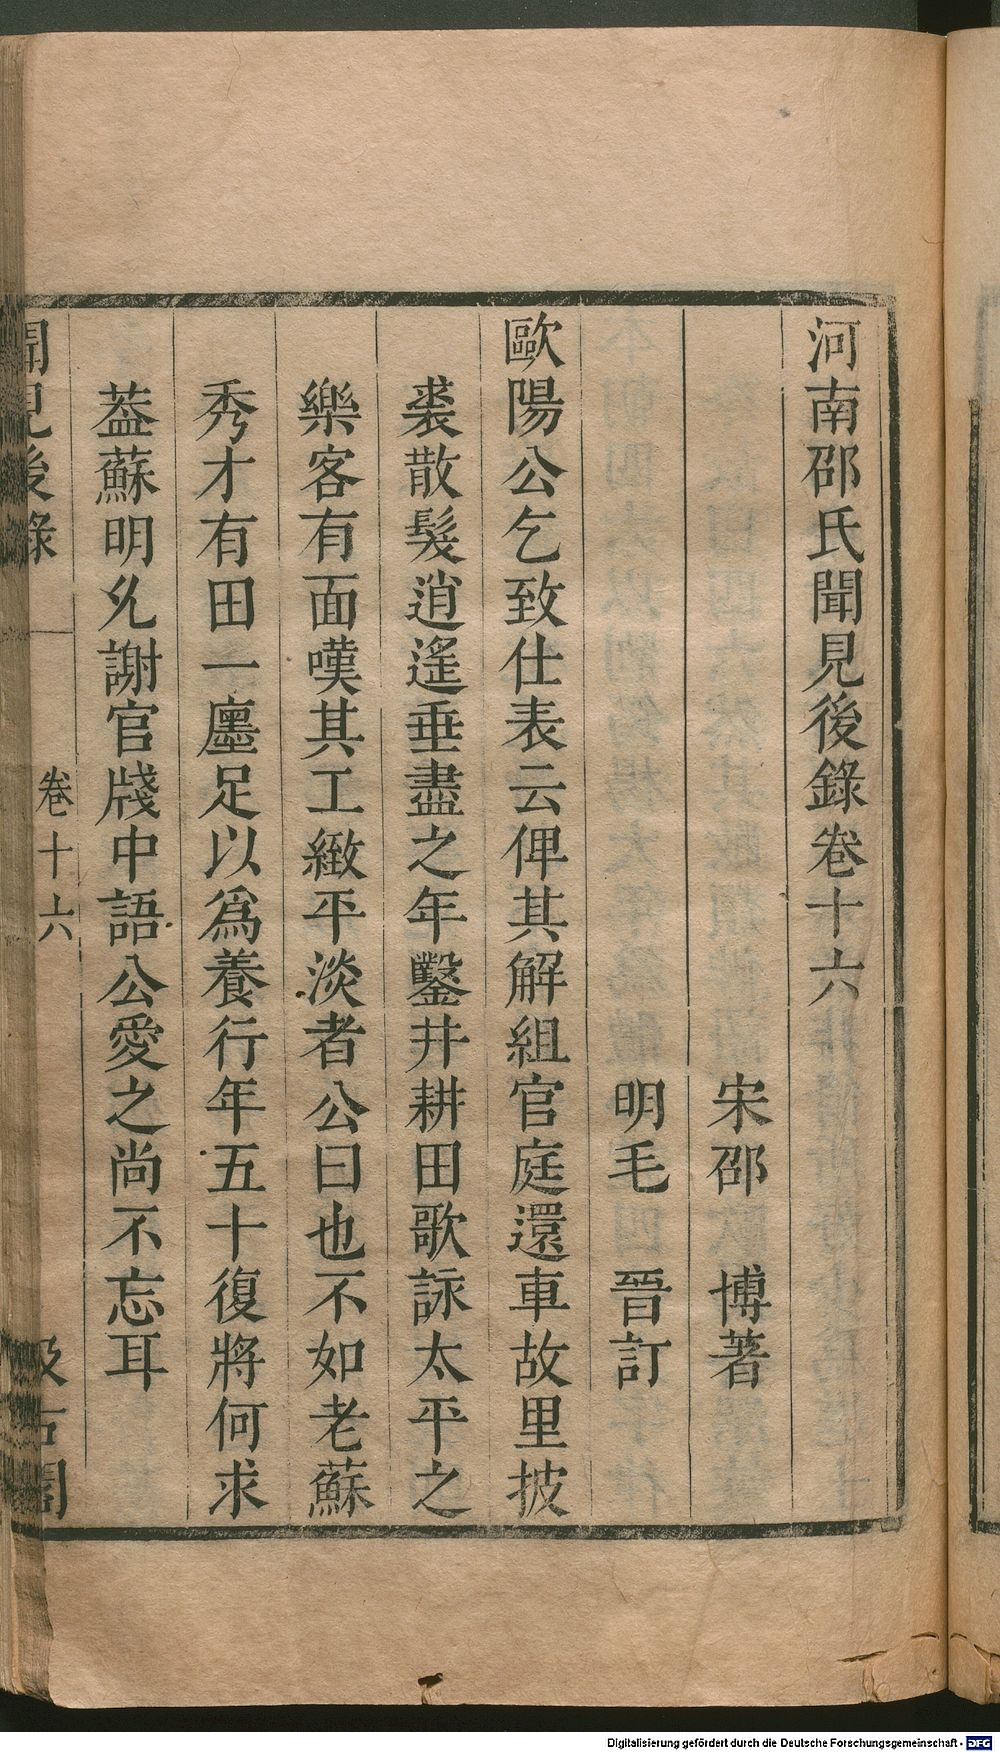 河南邵氏聞見後錄卷十六
宋邵　博著
明毛　晉訂
歐陽公乞致仕表云俾其解組官庭還車故里披
裘散髮逍遙垂盡之年鑿井耕田歌詠太平之
樂客有面嘆其工緻平淡者公曰也不如老蘇
秀才有田一廛足以爲養行年五十復將何求
葢蘇明允謝官牋中語公愛之尚不忘耳
聞見後錄　卷十六　汲古閣
Digitalisierung gefördert durch die Deutsche Forschungsgemeinschaft - DFG